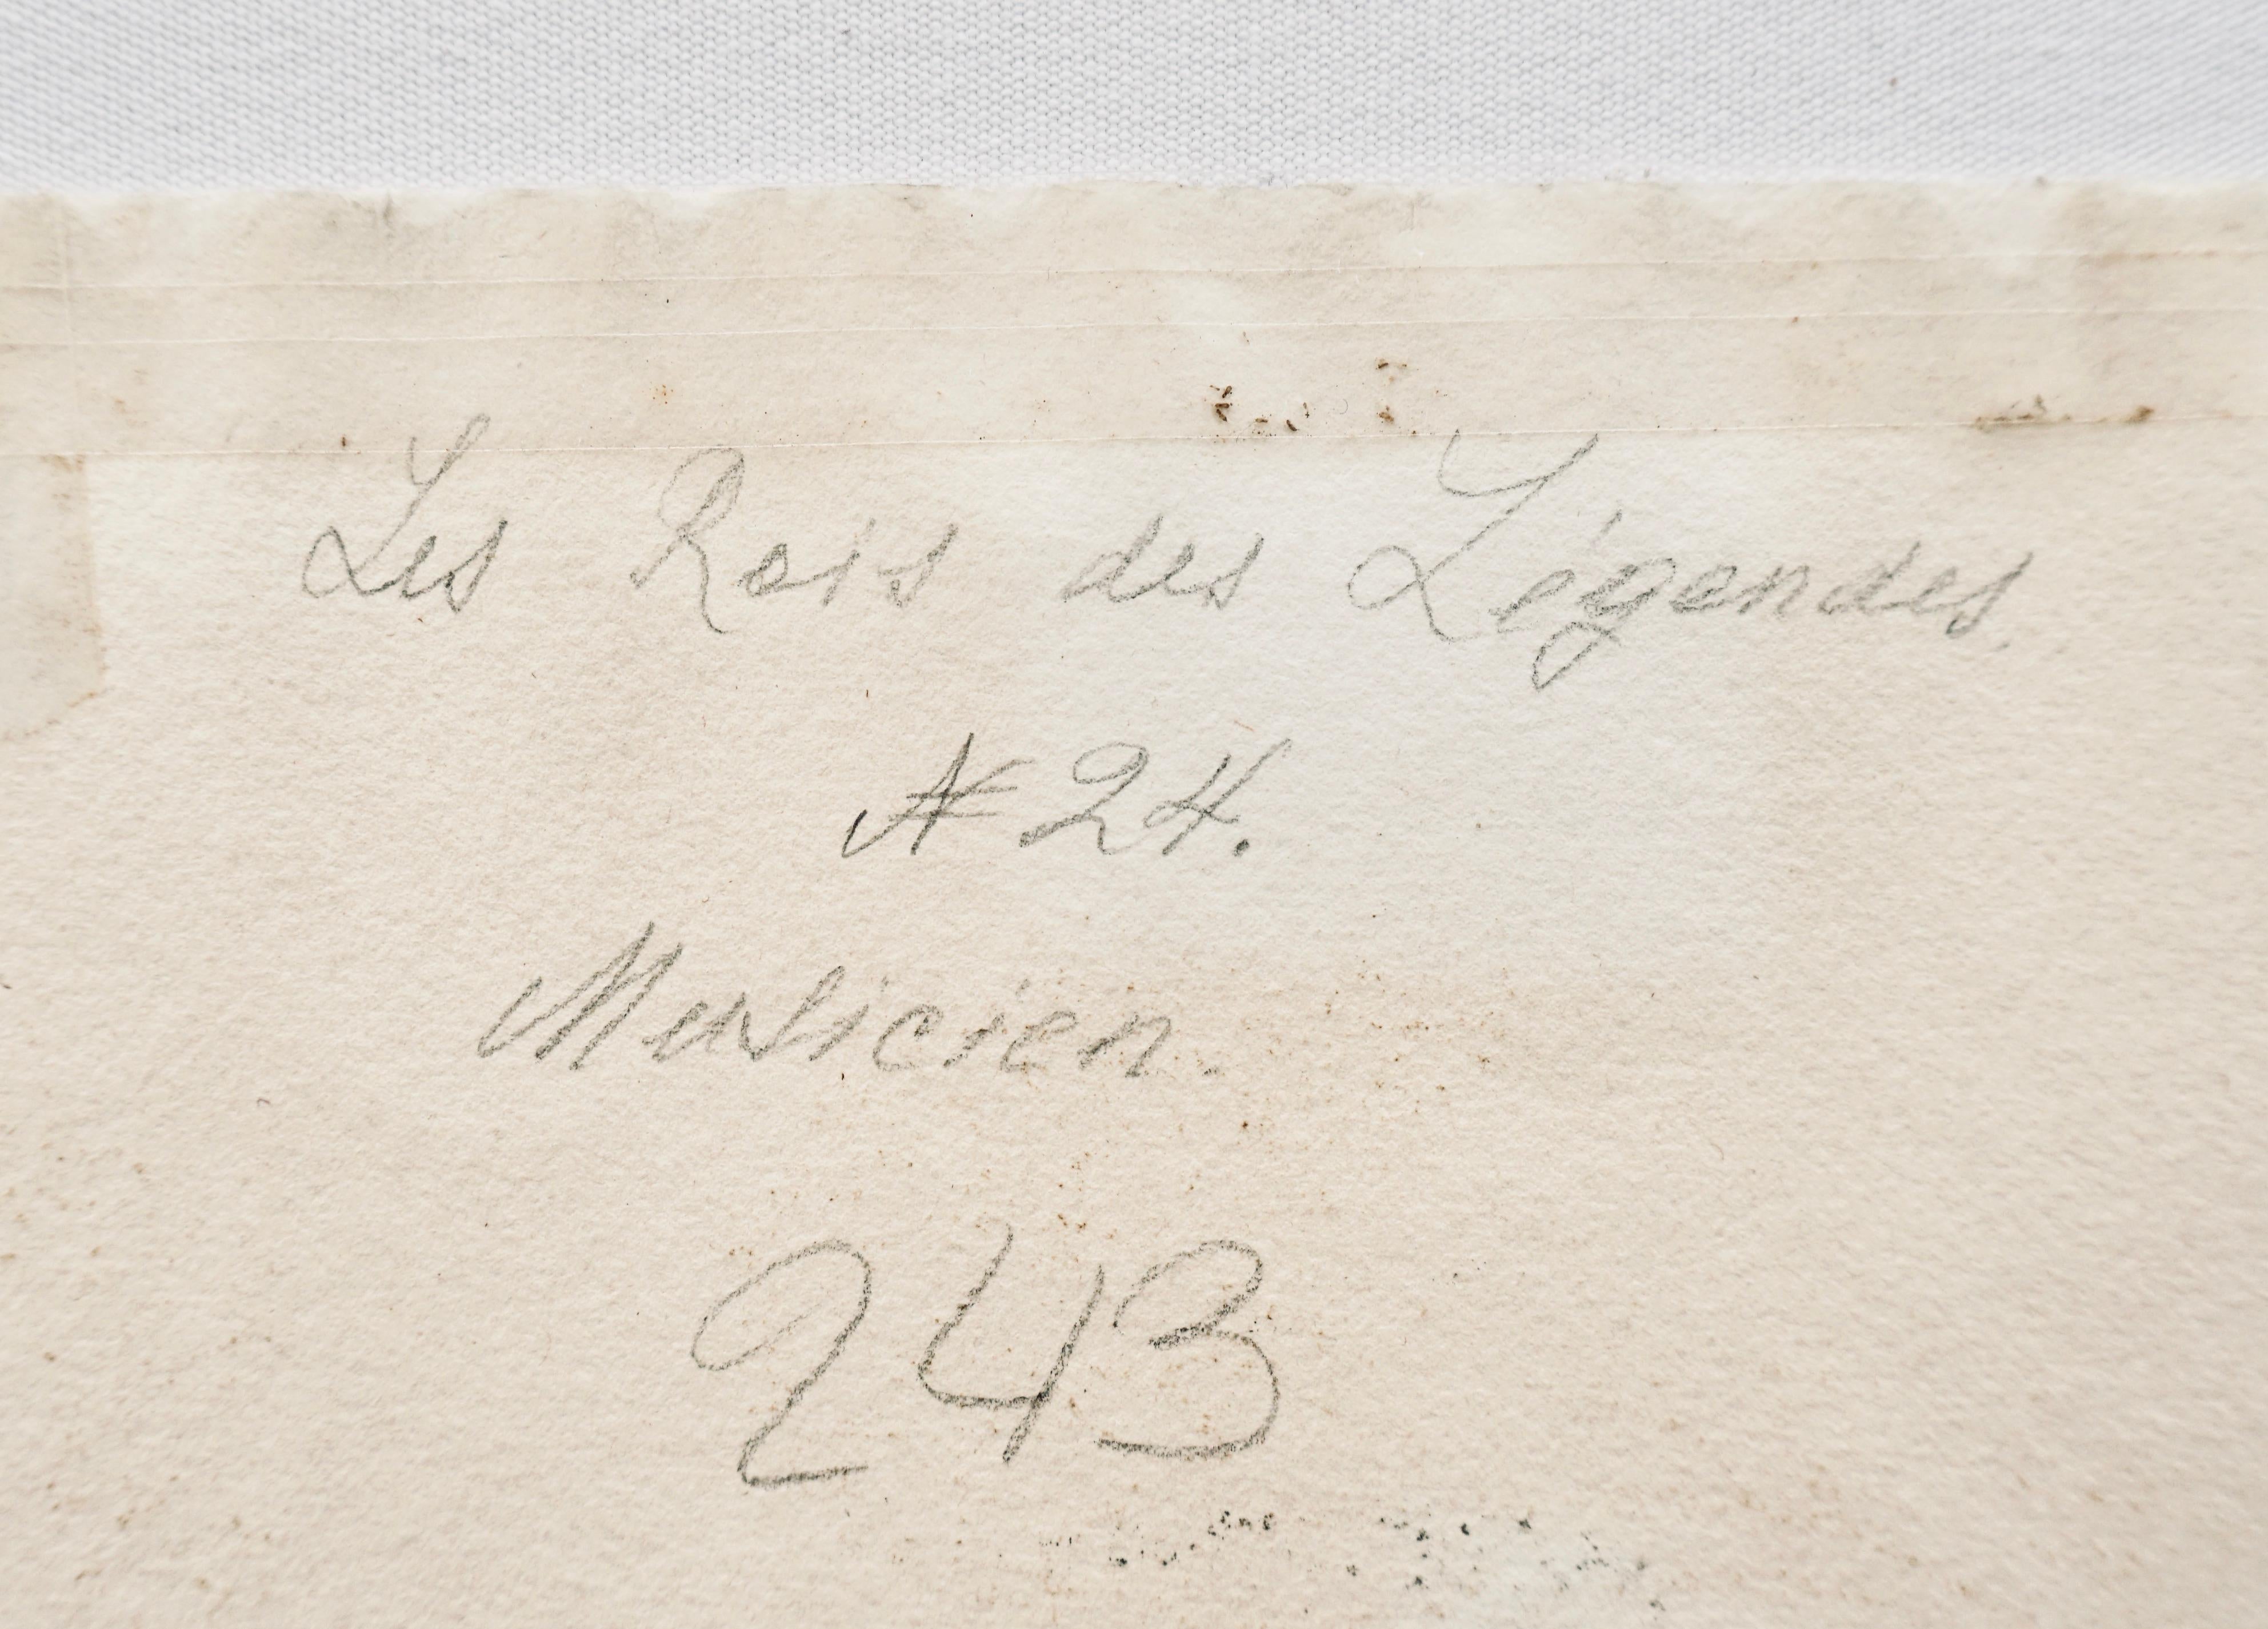 Les Rois des Légendes.
N 24.
Musicien.
243